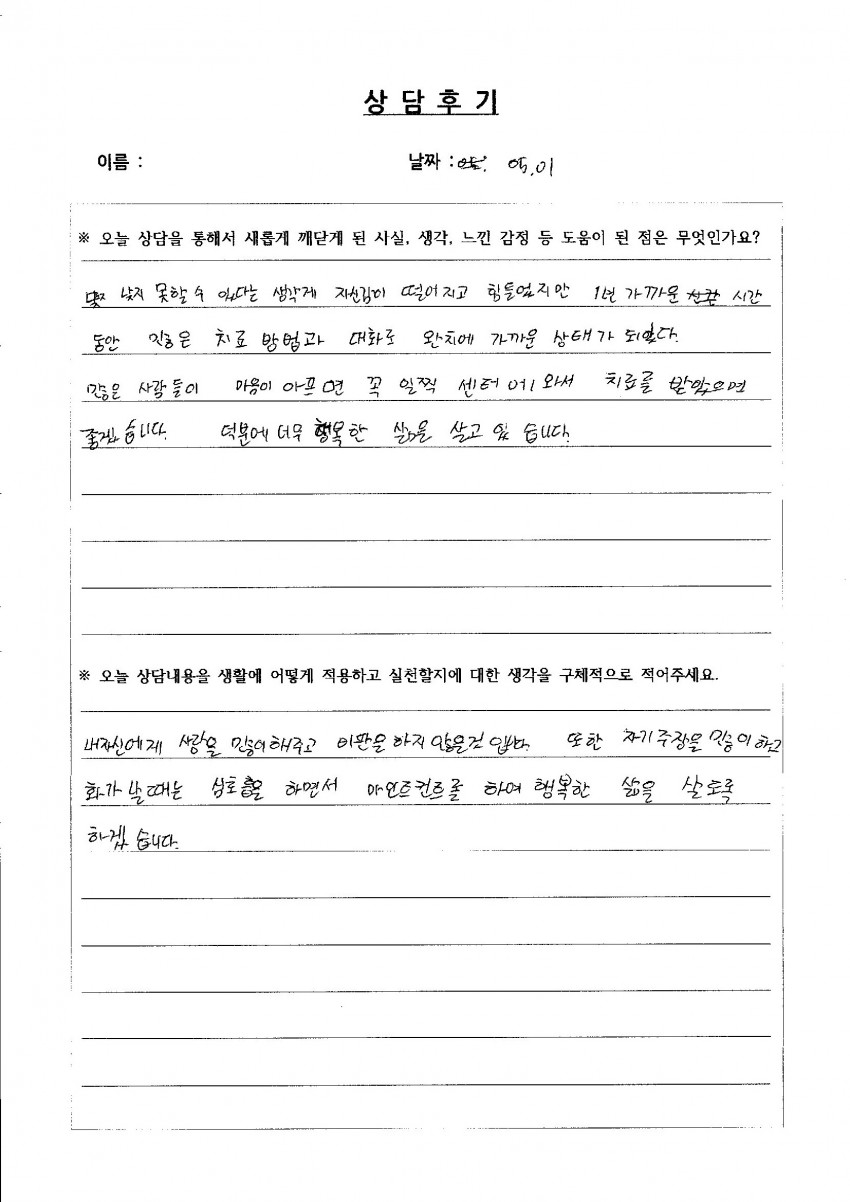 상 담 후 기
이름 :
날짜 : 05.01
※ 오늘 상담을 통해서 새롭게 깨닫게 된 사실, 생각, 느낀 감정 등 도움이 된 점은 무엇인가요?
낫지 못할 수 있다는 생각에 자신감이 떨어지고 힘들었지만 1년 가까운 시간
동안 많은 치료 방법과 대화로 완치에 가까운 상태가 되었다.
많은 사람들이 마음이 아프면 꼭 일찍 센터에 와서 치료를 받았으면
좋겠습니다. 덕분에 너무 행복한 삶을 살고 있습니다.
※ 오늘 상담내용을 생활에 어떻게 적용하고 실천할지에 대한 생각을 구체적으로 적어주세요.
내자신에게 사랑을 많이 해주고 비판을 하지 않을것 입니다. 또한 자기주장을 많이 하고
화가 날 때는 심호흡을 하면서 마인드컨트롤 하여 행복한 삶을 살도록
하겠습니다.